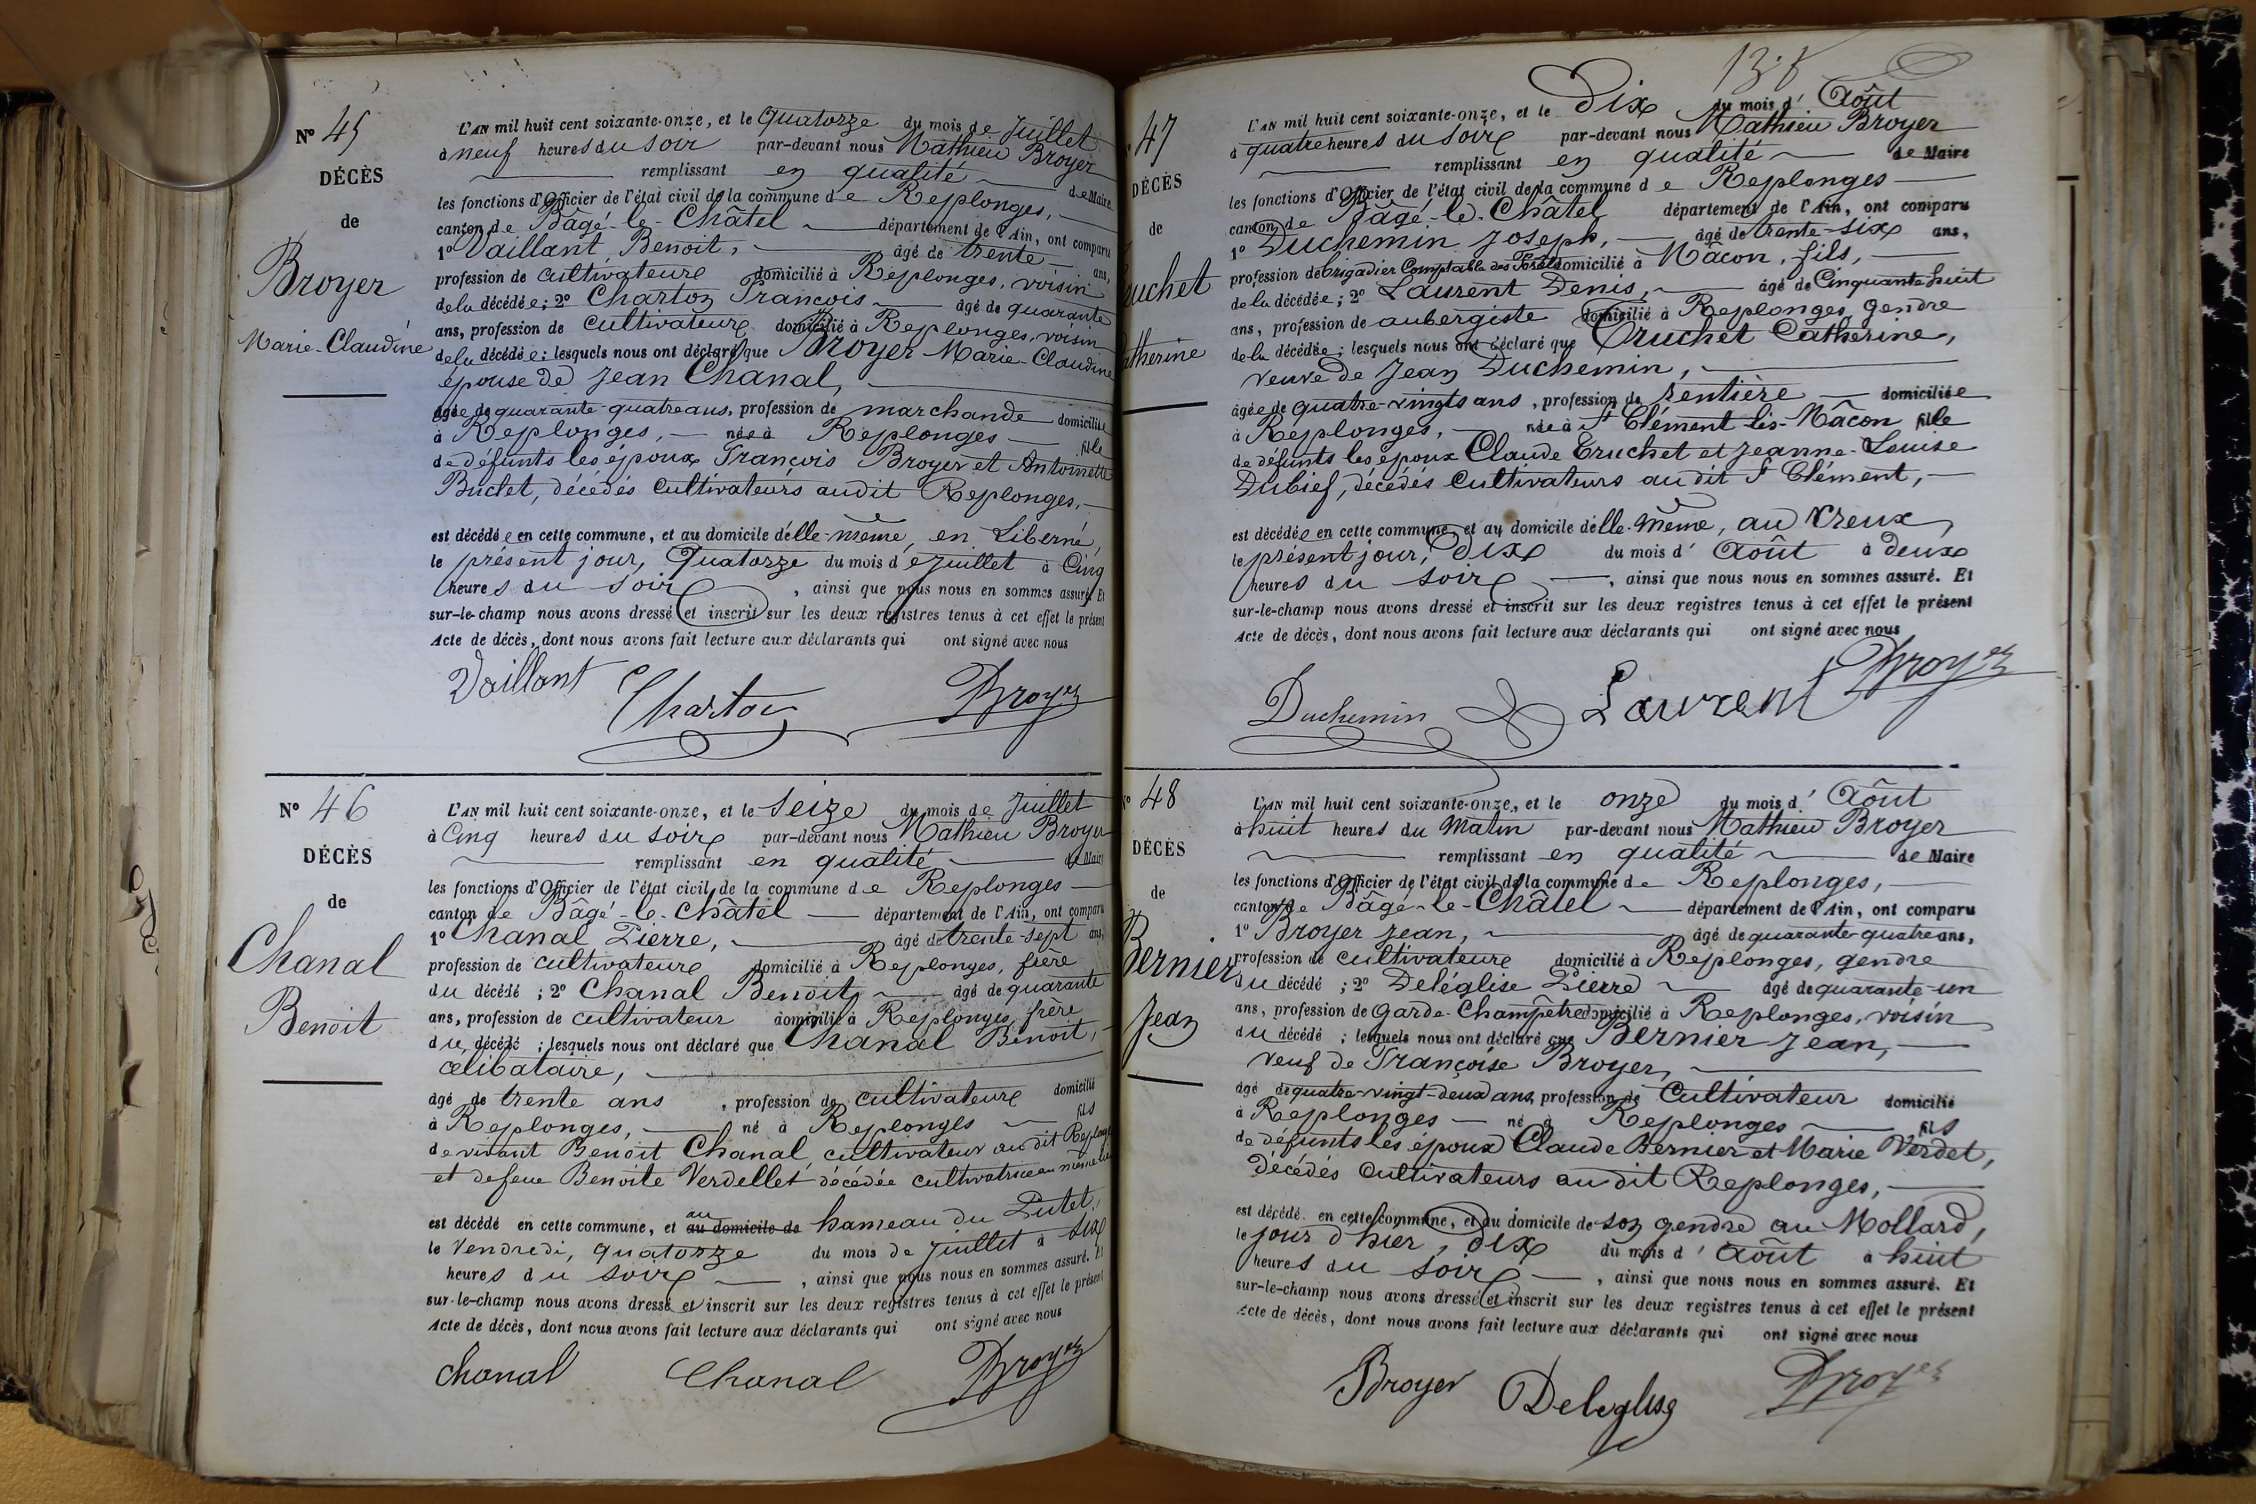 N° 45
DÉCÈS
de
Broyer
Marie-Claudine
L'AN mil huit cent soixante-onze, et le quatorze du mois de Juillet
à neuf heures du soir par-devant nous Mathieu Broyer
remplissant en qualité de Maire
les fonctions d'Officier de l'état civil de la commune de Replonges,
canton de Bâgé-le-Châtel département de l'Ain, ont comparu
1° Vaillant Benoit, âgé de trente ans,
profession de cultivateur domicilié à Replonges, voisin
de la décédée; 2° Charton François âgé de quarante
ans, profession de cultivateur domicilié à Replonges, voisin
de la décédée; lesquels nous ont déclaré que Broyer Marie-Claudine
épouse de Jean Chanal,
âgée de quarante-quatre ans, profession de marchande domiciliée
à Replonges, née à Replonges fille
de défunts les époux François Broyer et Antoinette
Buchet, décédés cultivateurs audit Replonges,
est décédée en cette commune, et au domicile d'elle-même, en Liberné,
le présent jour, Quatorze du mois de Juillet à Cinq
heures du soir, ainsi que nous nous en sommes assuré. Et
sur-le-champ nous avons dressé et inscrit sur les deux registres tenus à cet effet le présent
Acte de décès, dont nous avons fait lecture aux déclarants qui ont signé avec nous
Vaillant Charton Broyer
N° 46
DÉCÈS
de
Chanal
Benoit
L'AN mil huit cent soixante-onze, et le Seize du mois de Juillet
à Cinq heures du soir par-devant nous Mathieu Broyer
remplissant en qualité de Maire
les fonctions d'Officier de l'état civil de la commune de Replonges
canton de Bâgé-le-Châtel département de l'Ain, ont comparu
1° Chanal Pierre, âgé de trente-sept ans,
profession de cultivateur domicilié à Replonges, frère
du décédé; 2° Chanal Benoit, âgé de quarante
ans, profession de cultivateur domicilié à Replonges, frère
du décédé; lesquels nous ont déclaré que Chanal Benoit,
célibataire,
âgé de trente ans, profession de cultivateur domicilié
à Replonges, né à Replonges fils
de vivant Benoit Chanal, cultivateur audit Replonges
et de feue Benoite Verdellet décédée cultivatrice au même lieu
est décédé en cette commune, et au domicile de au hameau du Putet,
le Vendredi, quatorze du mois de Juillet à six
heures du soir, ainsi que nous nous en sommes assuré. Et
sur-le-champ nous avons dressé et inscrit sur les deux registres tenus à cet effet le présent
Acte de décès, dont nous avons fait lecture aux déclarants qui ont signé avec nous
Chanal Chanal Broyer
47
DÉCÈS
de
ruchet
atherine
L'AN mil huit cent soixante-onze, et le Dix du mois d'Août
à quatre heures du soir par-devant nous Mathieu Broyer
remplissant en qualité de Maire
les fonctions d'Officier de l'état civil de la commune de Replonges
canton de Bâgé-le-Châtel département de l'Ain, ont comparu
1° Duchemin Joseph, âgé de trente-six ans,
profession de brigadier Comptable des Forêts domicilié à Mâcon, fils,
de la décédée; 2° Laurent Denis, âgé de Cinquante-huit
ans, profession de aubergiste domicilié à Replonges, gendre
de la décédée; lesquels nous ont déclaré que Cruchet Catherine,
veuve de Jean Duchemin,
âgée de quatre-vingts ans, profession de rentière domiciliée
à Replonges, née à St Clément-lès-Mâcon fille
de défunts les époux Claude Cruchet et Jeanne-Louise
Dubief, décédés cultivateurs au dit St Clément,
est décédée en cette commune, et au domicile d'elle-même, au Creux,
le présent jour, dix du mois d'Août à deux
heures du soir, ainsi que nous nous en sommes assuré. Et
sur-le-champ nous avons dressé et inscrit sur les deux registres tenus à cet effet le présent
Acte de décès, dont nous avons fait lecture aux déclarants qui ont signé avec nous
Duchemin Laurent Broyer
48
DÉCÈS
de
Bernier
Jean
L'AN mil huit cent soixante-onze, et le onze du mois d'Août
à huit heures du matin par-devant nous Mathieu Broyer
remplissant en qualité de Maire
les fonctions d'Officier de l'état civil de la commune de Replonges,
canton de Bâgé-le-Châtel département de l'Ain, ont comparu
1° Broyer Jean, âgé de quarante-quatre ans,
profession de cultivateur domicilié à Replonges, gendre
du décédé; 2° Deléglise Pierre âgé de quarante-un
ans, profession de garde-Champêtre domicilié à Replonges, voisin
du décédé; lesquels nous ont déclaré que Bernier Jean,
veuf de Françoise Broyer,
âgé de quatre-vingt-deux ans, profession de Cultivateur domicilié
à Replonges né à Replonges fils
de défunts les époux Claude Bernier et Marie Verdet,
décédés cultivateurs au dit Replonges,
est décédé en cette commune, et au domicile de son gendre au Mollard,
le jour d'hier, dix du mois d'Août à huit
heures du soir, ainsi que nous nous en sommes assuré. Et
sur-le-champ nous avons dressé et inscrit sur les deux registres tenus à cet effet le présent
Acte de décès, dont nous avons fait lecture aux déclarants qui ont signé avec nous
Broyer Deleglise Broyer